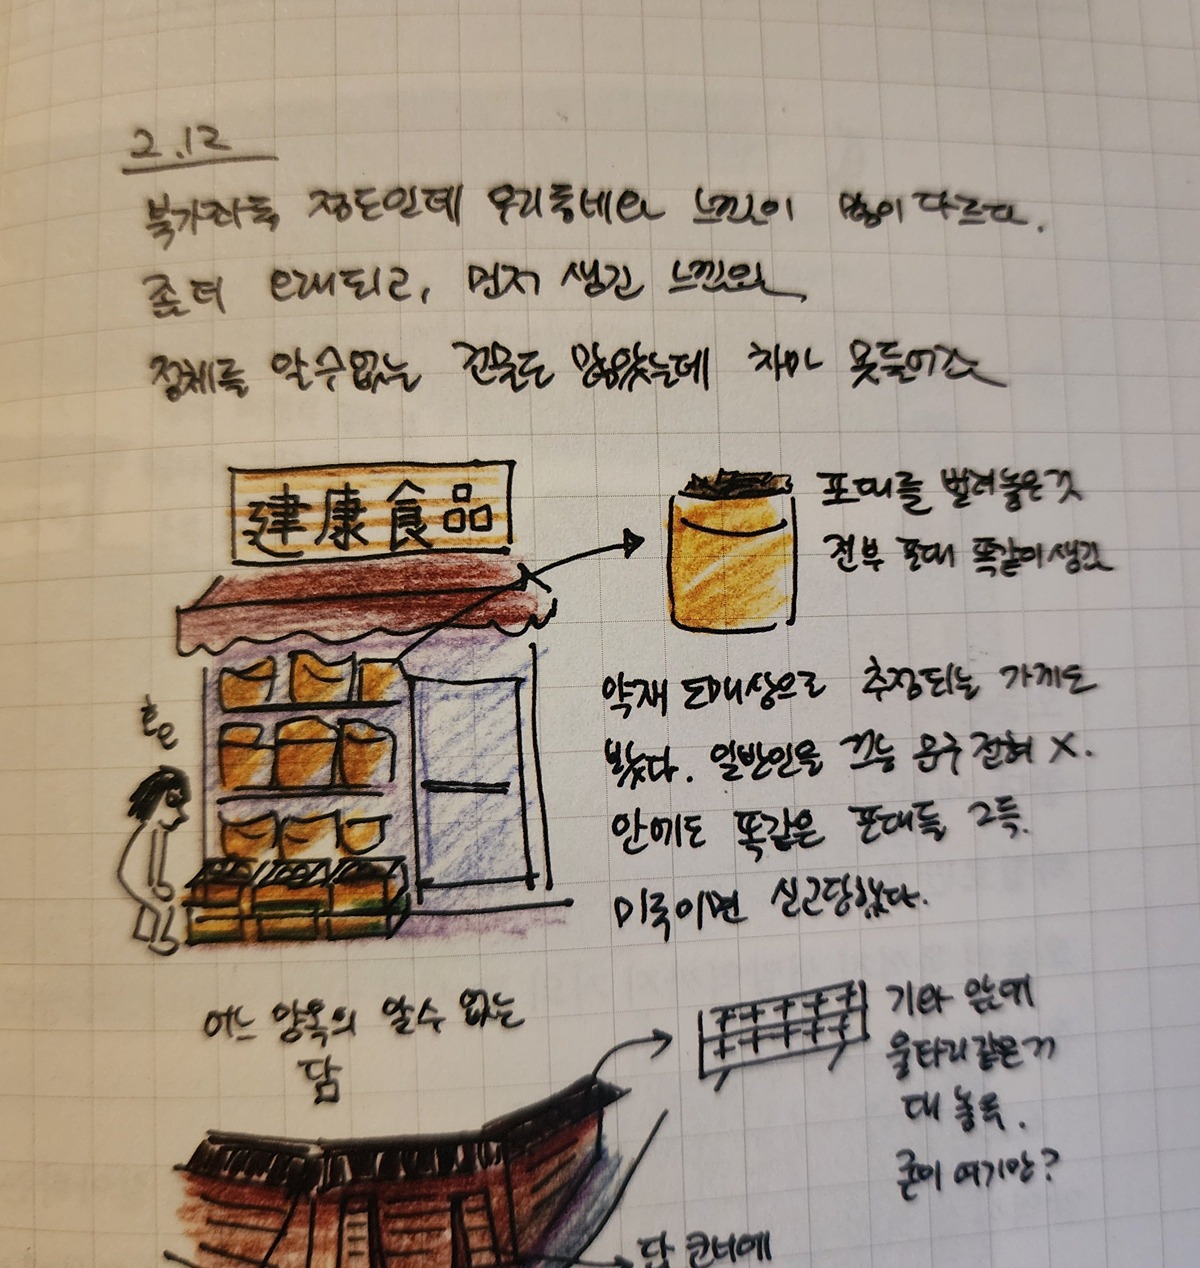 2.12
북가좌동 정도인데 우리동네와 느낌이 많이 다르다.
좀 더 오래되고, 먼저 생긴 느낌의
정체를 알 수 없는 건물도 많았는데 차마 못들어감
建康食品
포대를 벌려놓은 것
전부 포대 똑같이 생김
약재 도매상으로 추정되는 가게도
봤다. 일반인을 끄는 문구 전혀 X.
안에도 똑같은 포대들 그득.
미국이면 신고당했다.
어느 양옥의 알 수 없는
담
기와 앞에
울타리 같은 거
대 놓음.
굳이 여기만?
담 코너에